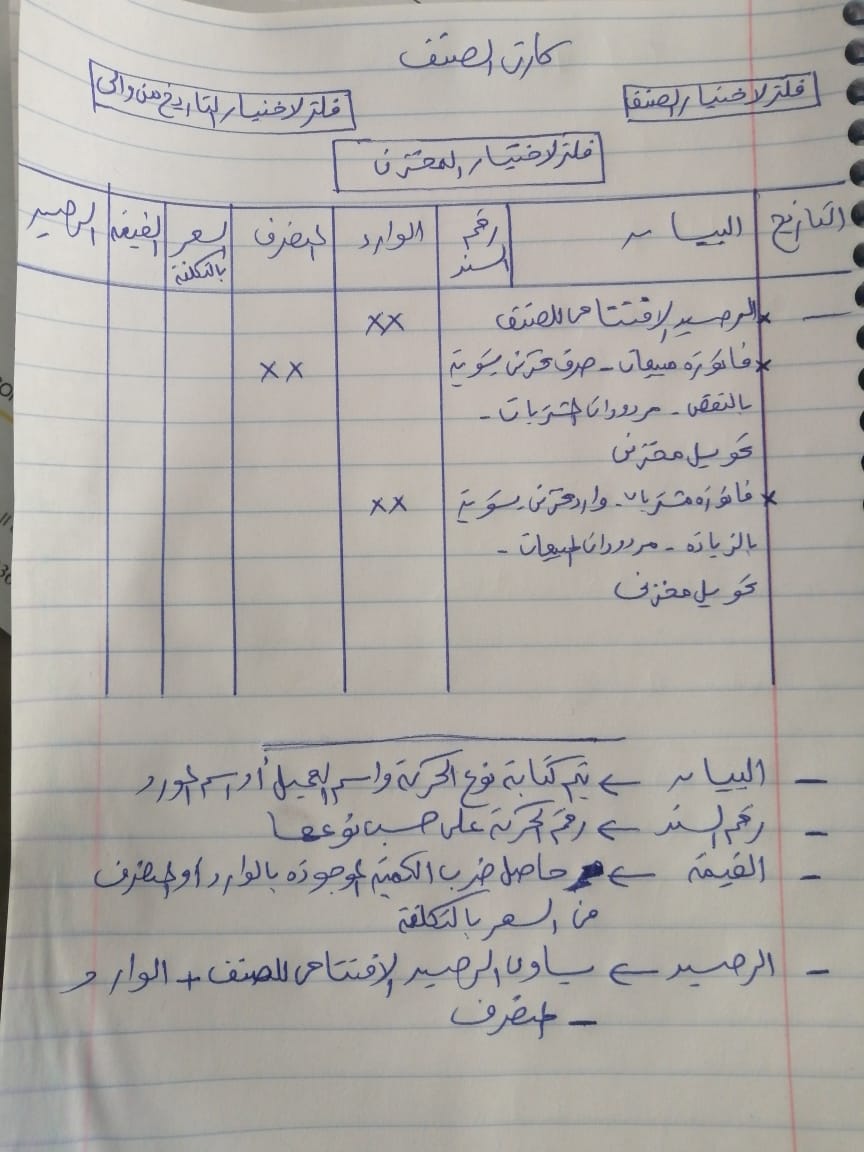 كارت الصنف
فلتر لاختيار الصنف
فلتر لاختيار التاريخ من والى
فلتر لاختيار المخزن
التاريخ البيان رقم السند الوارد المنصرف السعر بالتكلفة القيمة الرصيد
— * الرصيد الافتتاحى للصنف xx
* فاتورة مبيعات - صرف مخزنى تسوية xx
بالنقص - مردودات المشتريات -
تحويل مخزنى
* فاتورة مشتريات - وارد مخزنى تسوية xx
بالزيادة - مردودات المبيعات -
تحويل مخزنى
— البيان ← يتم كتابة نوع الحركة واسم العميل أو اسم المورد
— رقم السند ← رقم الحركة على حسب نوعها
— القيمة ← حاصل ضرب الكمية الموجودة بالوارد أو المنصرف
من السعر بالتكلفة
— الرصيد ← يساوى الرصيد الافتتاحى للصنف + الوارد
— المنصرف